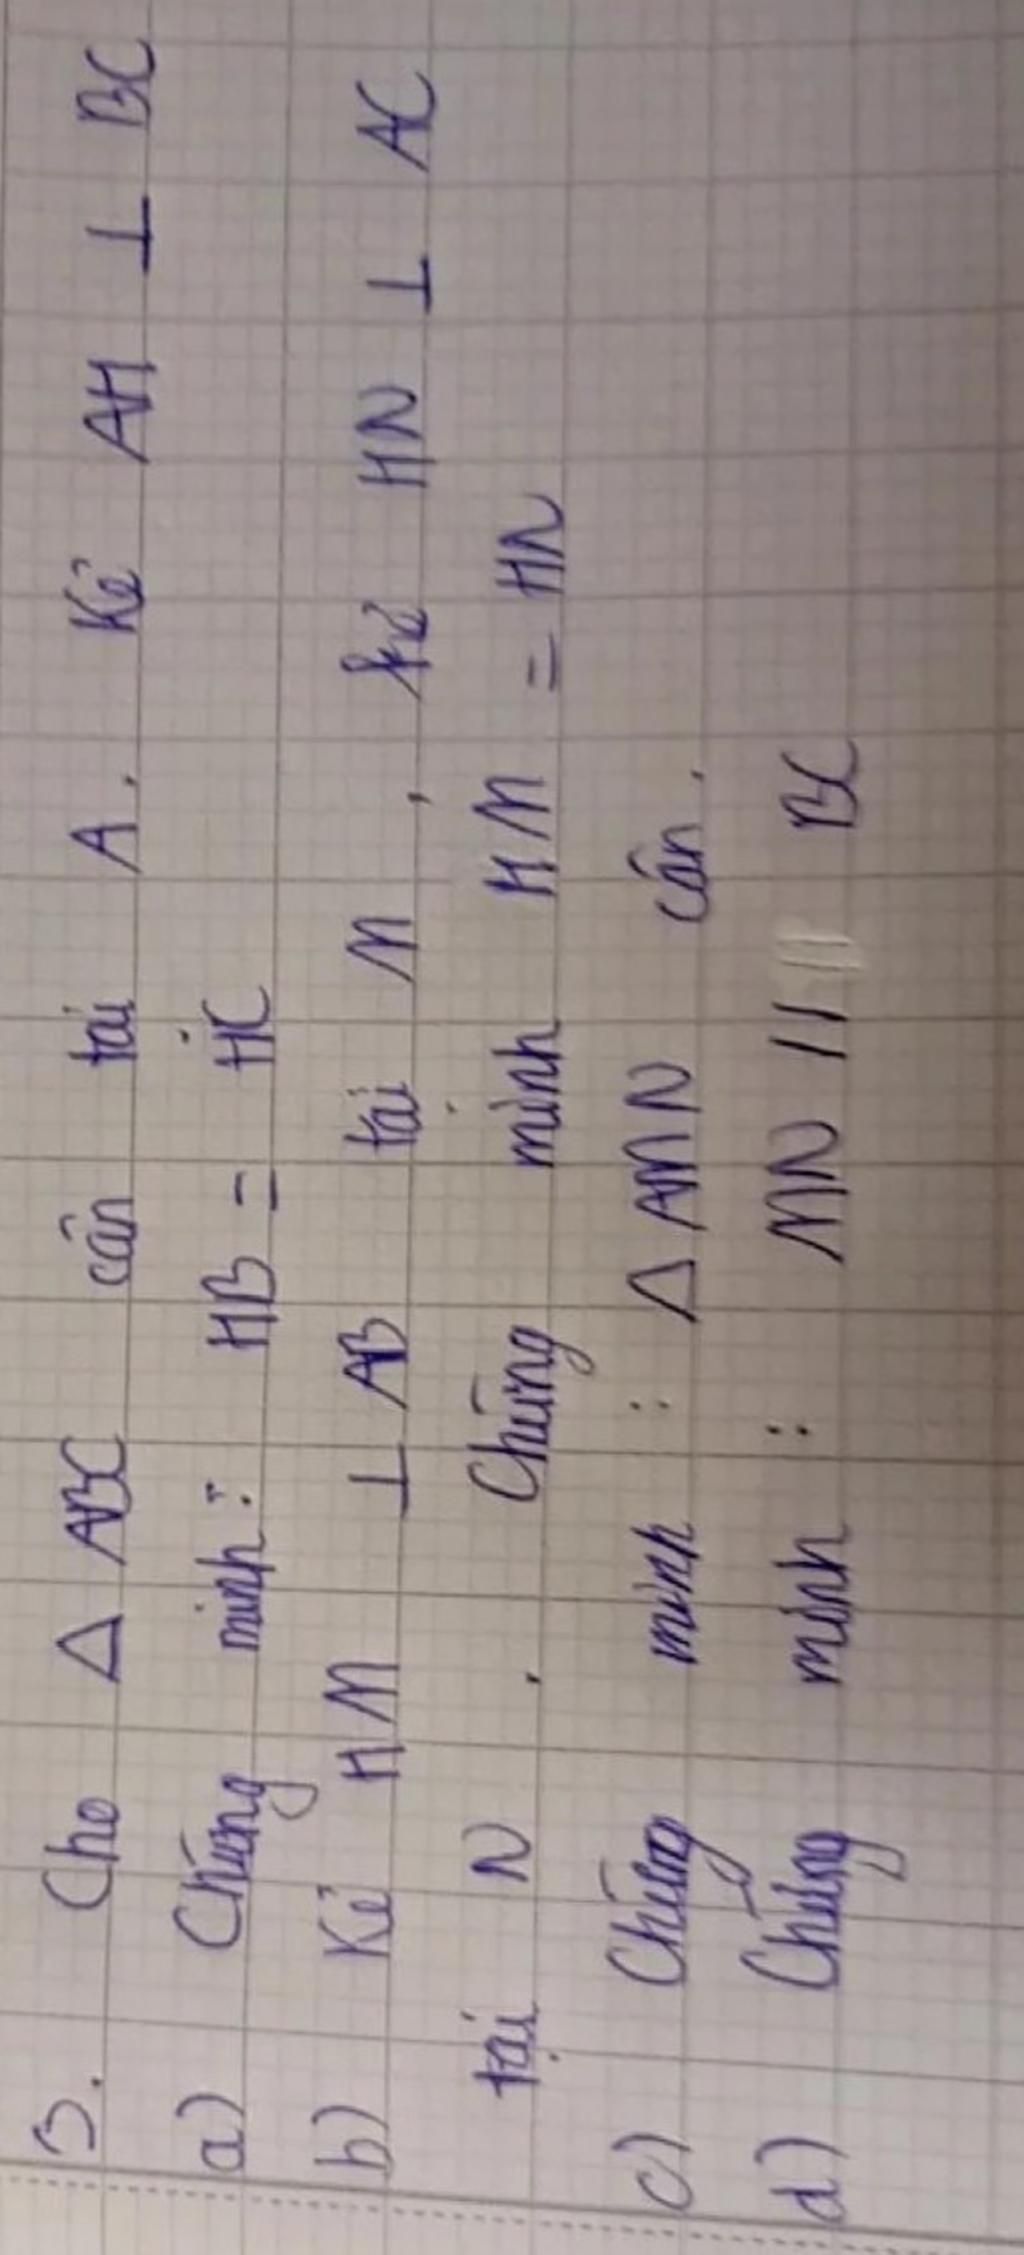 3. Cho Δ ABC cân tại A. Kẻ AH ⊥ BC
a) Chứng minh: HB = HC
b) Kẻ HM ⊥ AB tại M, kẻ HN ⊥ AC
tại N. Chứng minh HM = HN
c) Chứng minh: Δ AMN cân.
d) Chứng minh: MN // BC